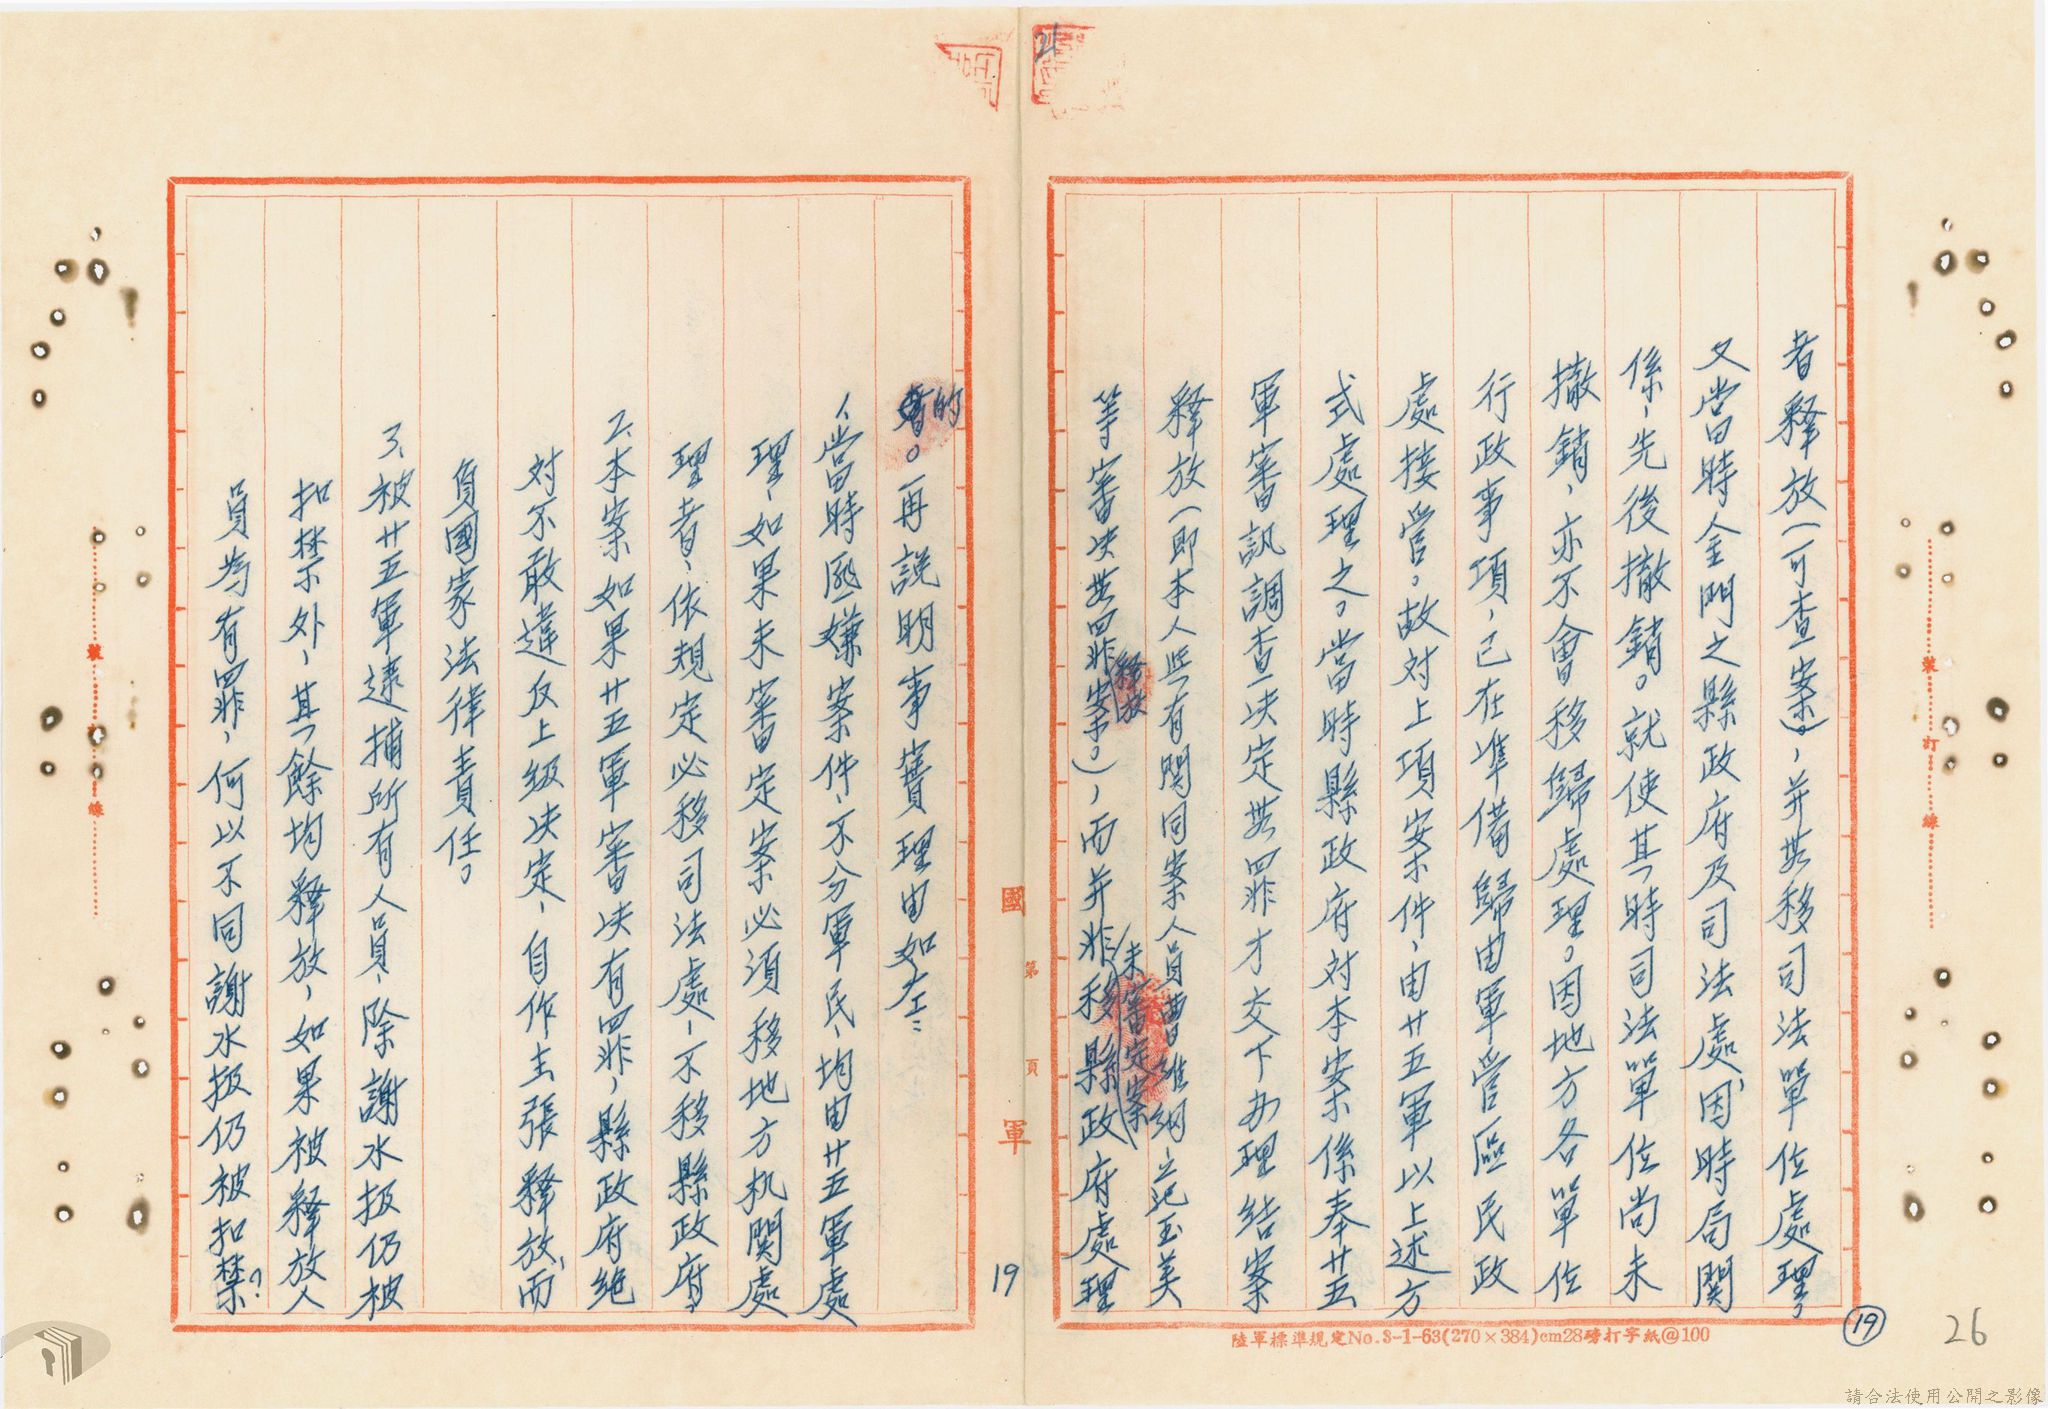 者釋放(可查案),并無移司法單位處理,
又當時金門之縣政府及司法處,因時局関
係,先後撤銷。就使其時司法單位尚未
撤銷,亦不會移歸處理。因地方各單位
行政事項,已在準備歸由軍管區民政
處接管。故対上項案件,由廿五軍以上述方
式處理之。當時縣政府対本案係奉廿五
軍審訊調查決定無罪才交下办理結案
釋放(即本人些有関同案人員曹維綱
等審決無罪案。),而并非移縣政府處理
釋放
未審定案
的
。再說明事實理由如左:
1、當時匪嫌案件,不分軍民,均由廿五軍處
理,如果未審定案必須移地方机関處
理者,依規定必移司法處,不移縣政府,
2、本案如果廿五軍審決有罪,縣政府絶
対不敢違反上級决定,自作主張釋放,而
負國家法律責任。
3、被廿五軍逮捕所有人員,除謝水扱仍被
扣禁外,其餘均釋放,如果被釋放人
員為有罪,何以不同謝水扱仍被扣禁?
國軍
第 頁
19
21
裝 訂 線
裝 訂 線
陸軍標準規定No.3-1-63(270×384)cm28磅打字紙@100
19
26
請合法使用公開之影像